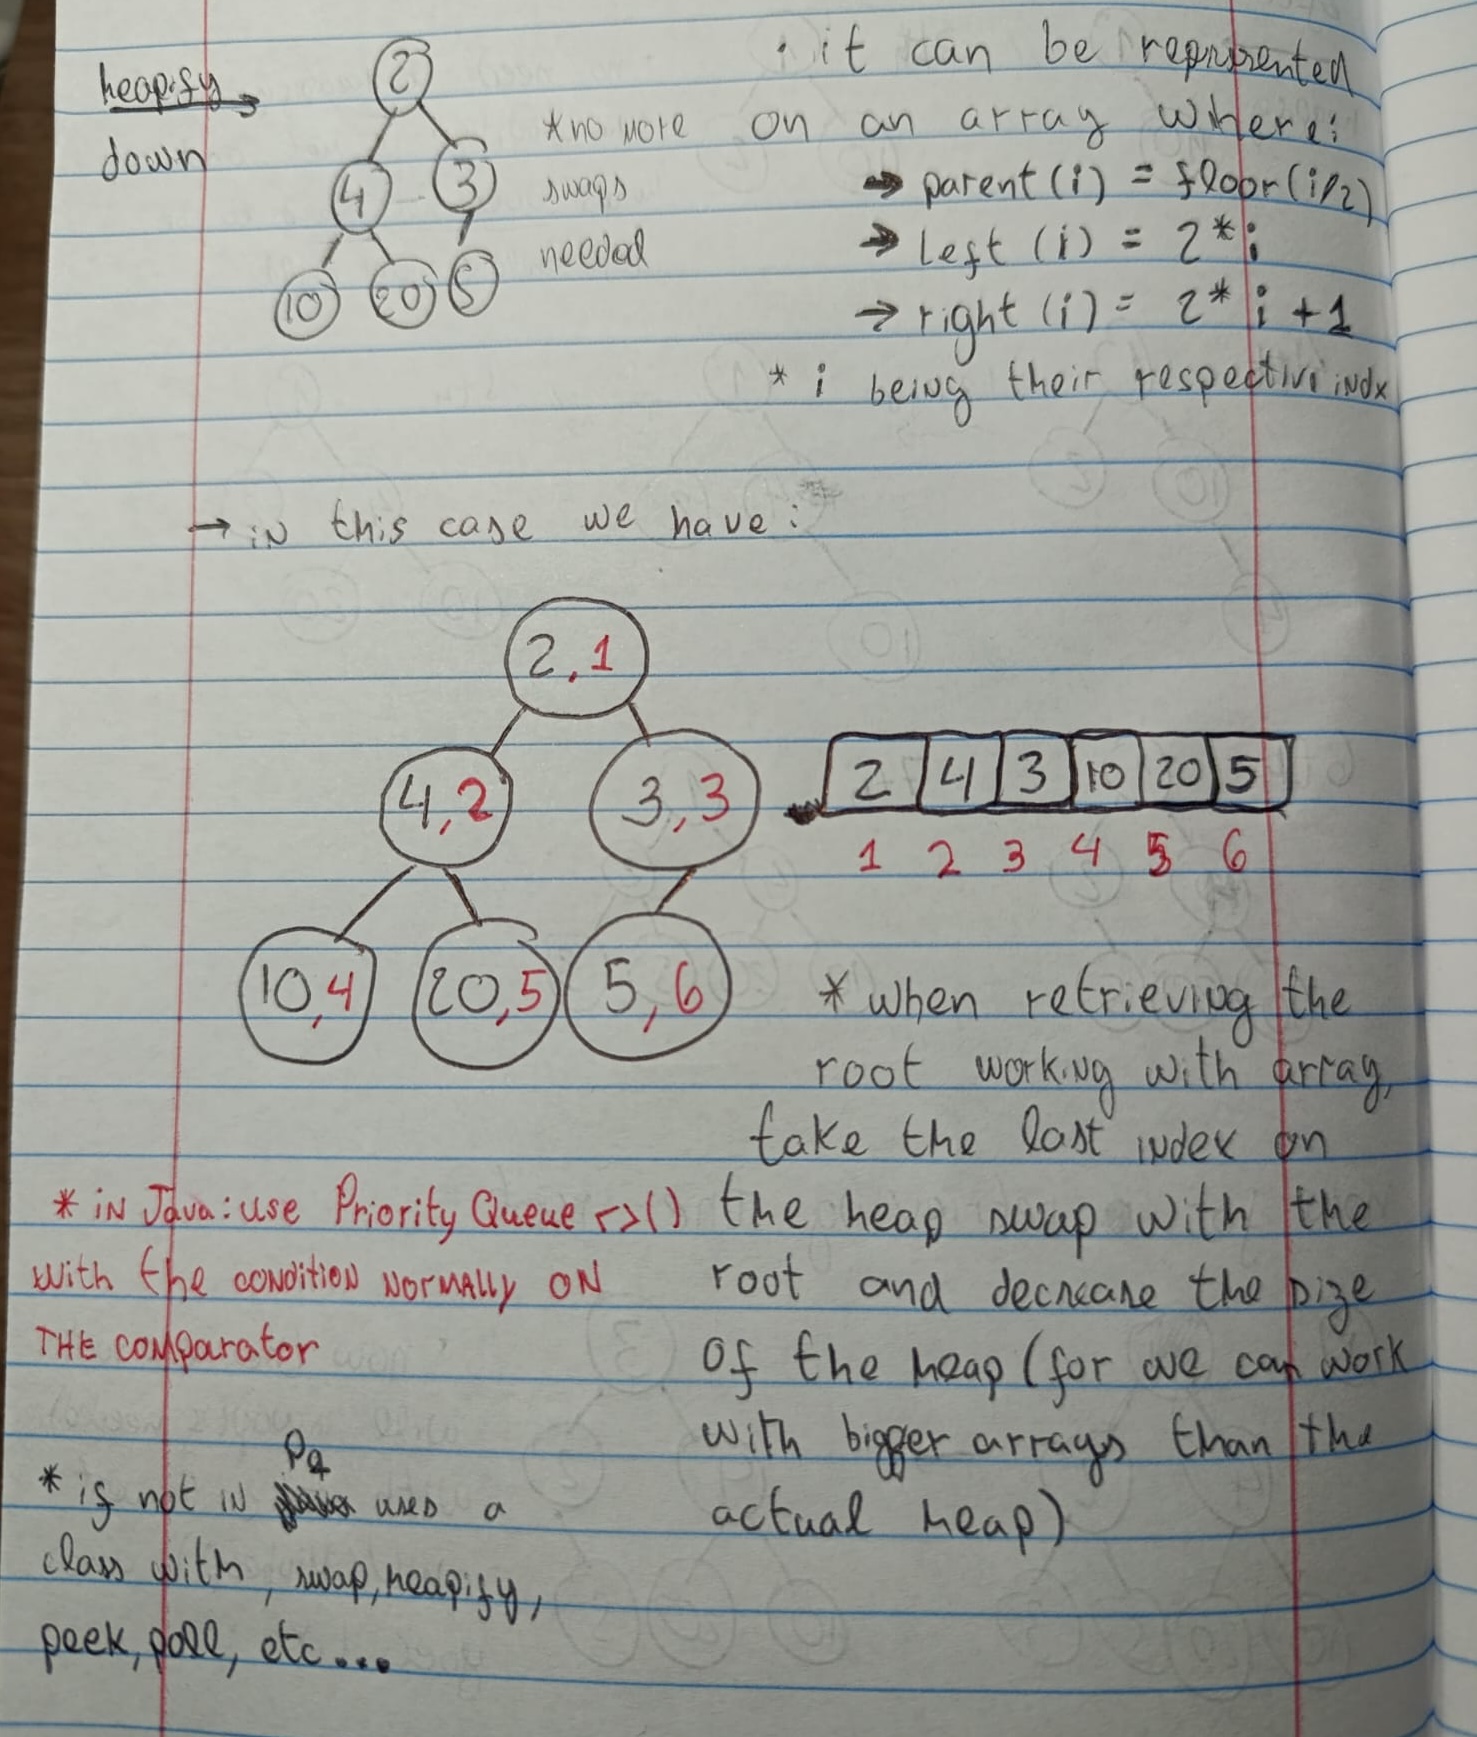 heapify
down
2
4 3
10 20 5
*no more
swaps
needed
· it can be reprrented
on an array where:
→ parent(i) = floor(i/2)
→ left (i) = 2*i
→ right (i) = 2* i +1
* i being their respective indx
→ in this case we have:
2,1
4,2 3,3
10,4 20,5 5,6
2 4 3 10 20 5
1 2 3 4 5 6
* when retrieving the
root working with array,
take the last index on
the heap swap with the
root and decrease the size
of the heap (for we can work
with bigger arrays than the
actual heap)
* in Java: use Priority Queue <>()
with the condition normally on
THE comparator
* if not in Pq uses a
class with, swap, heapify,
peek, poll, etc...